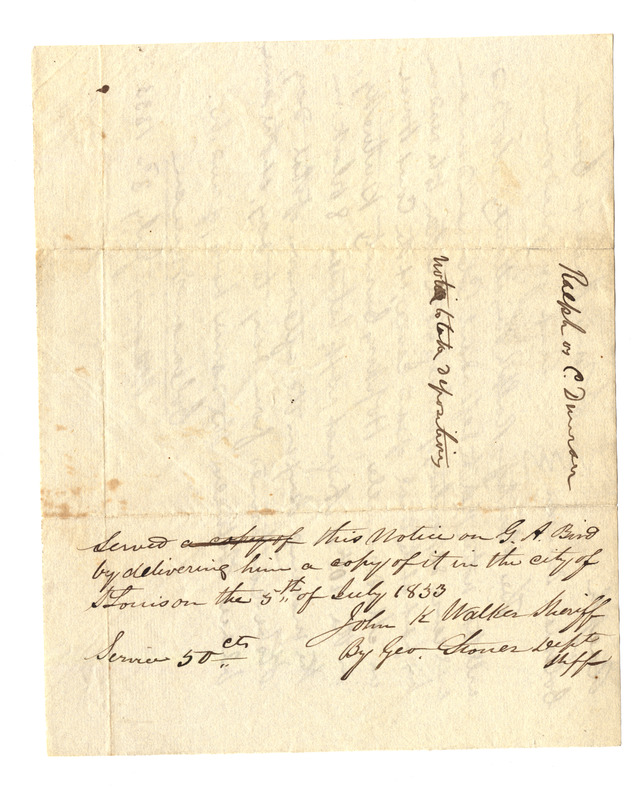 Ralph vs C. Duncan
Notice to take depositions
Served a copy of this Notice on G. A. Bird
by delivering him a copy of it in the city of
St Louis on the 5th of July 1833
John K Walker Sheriff
By Geo. Stoner Dept
Shff.
Service 50 cts